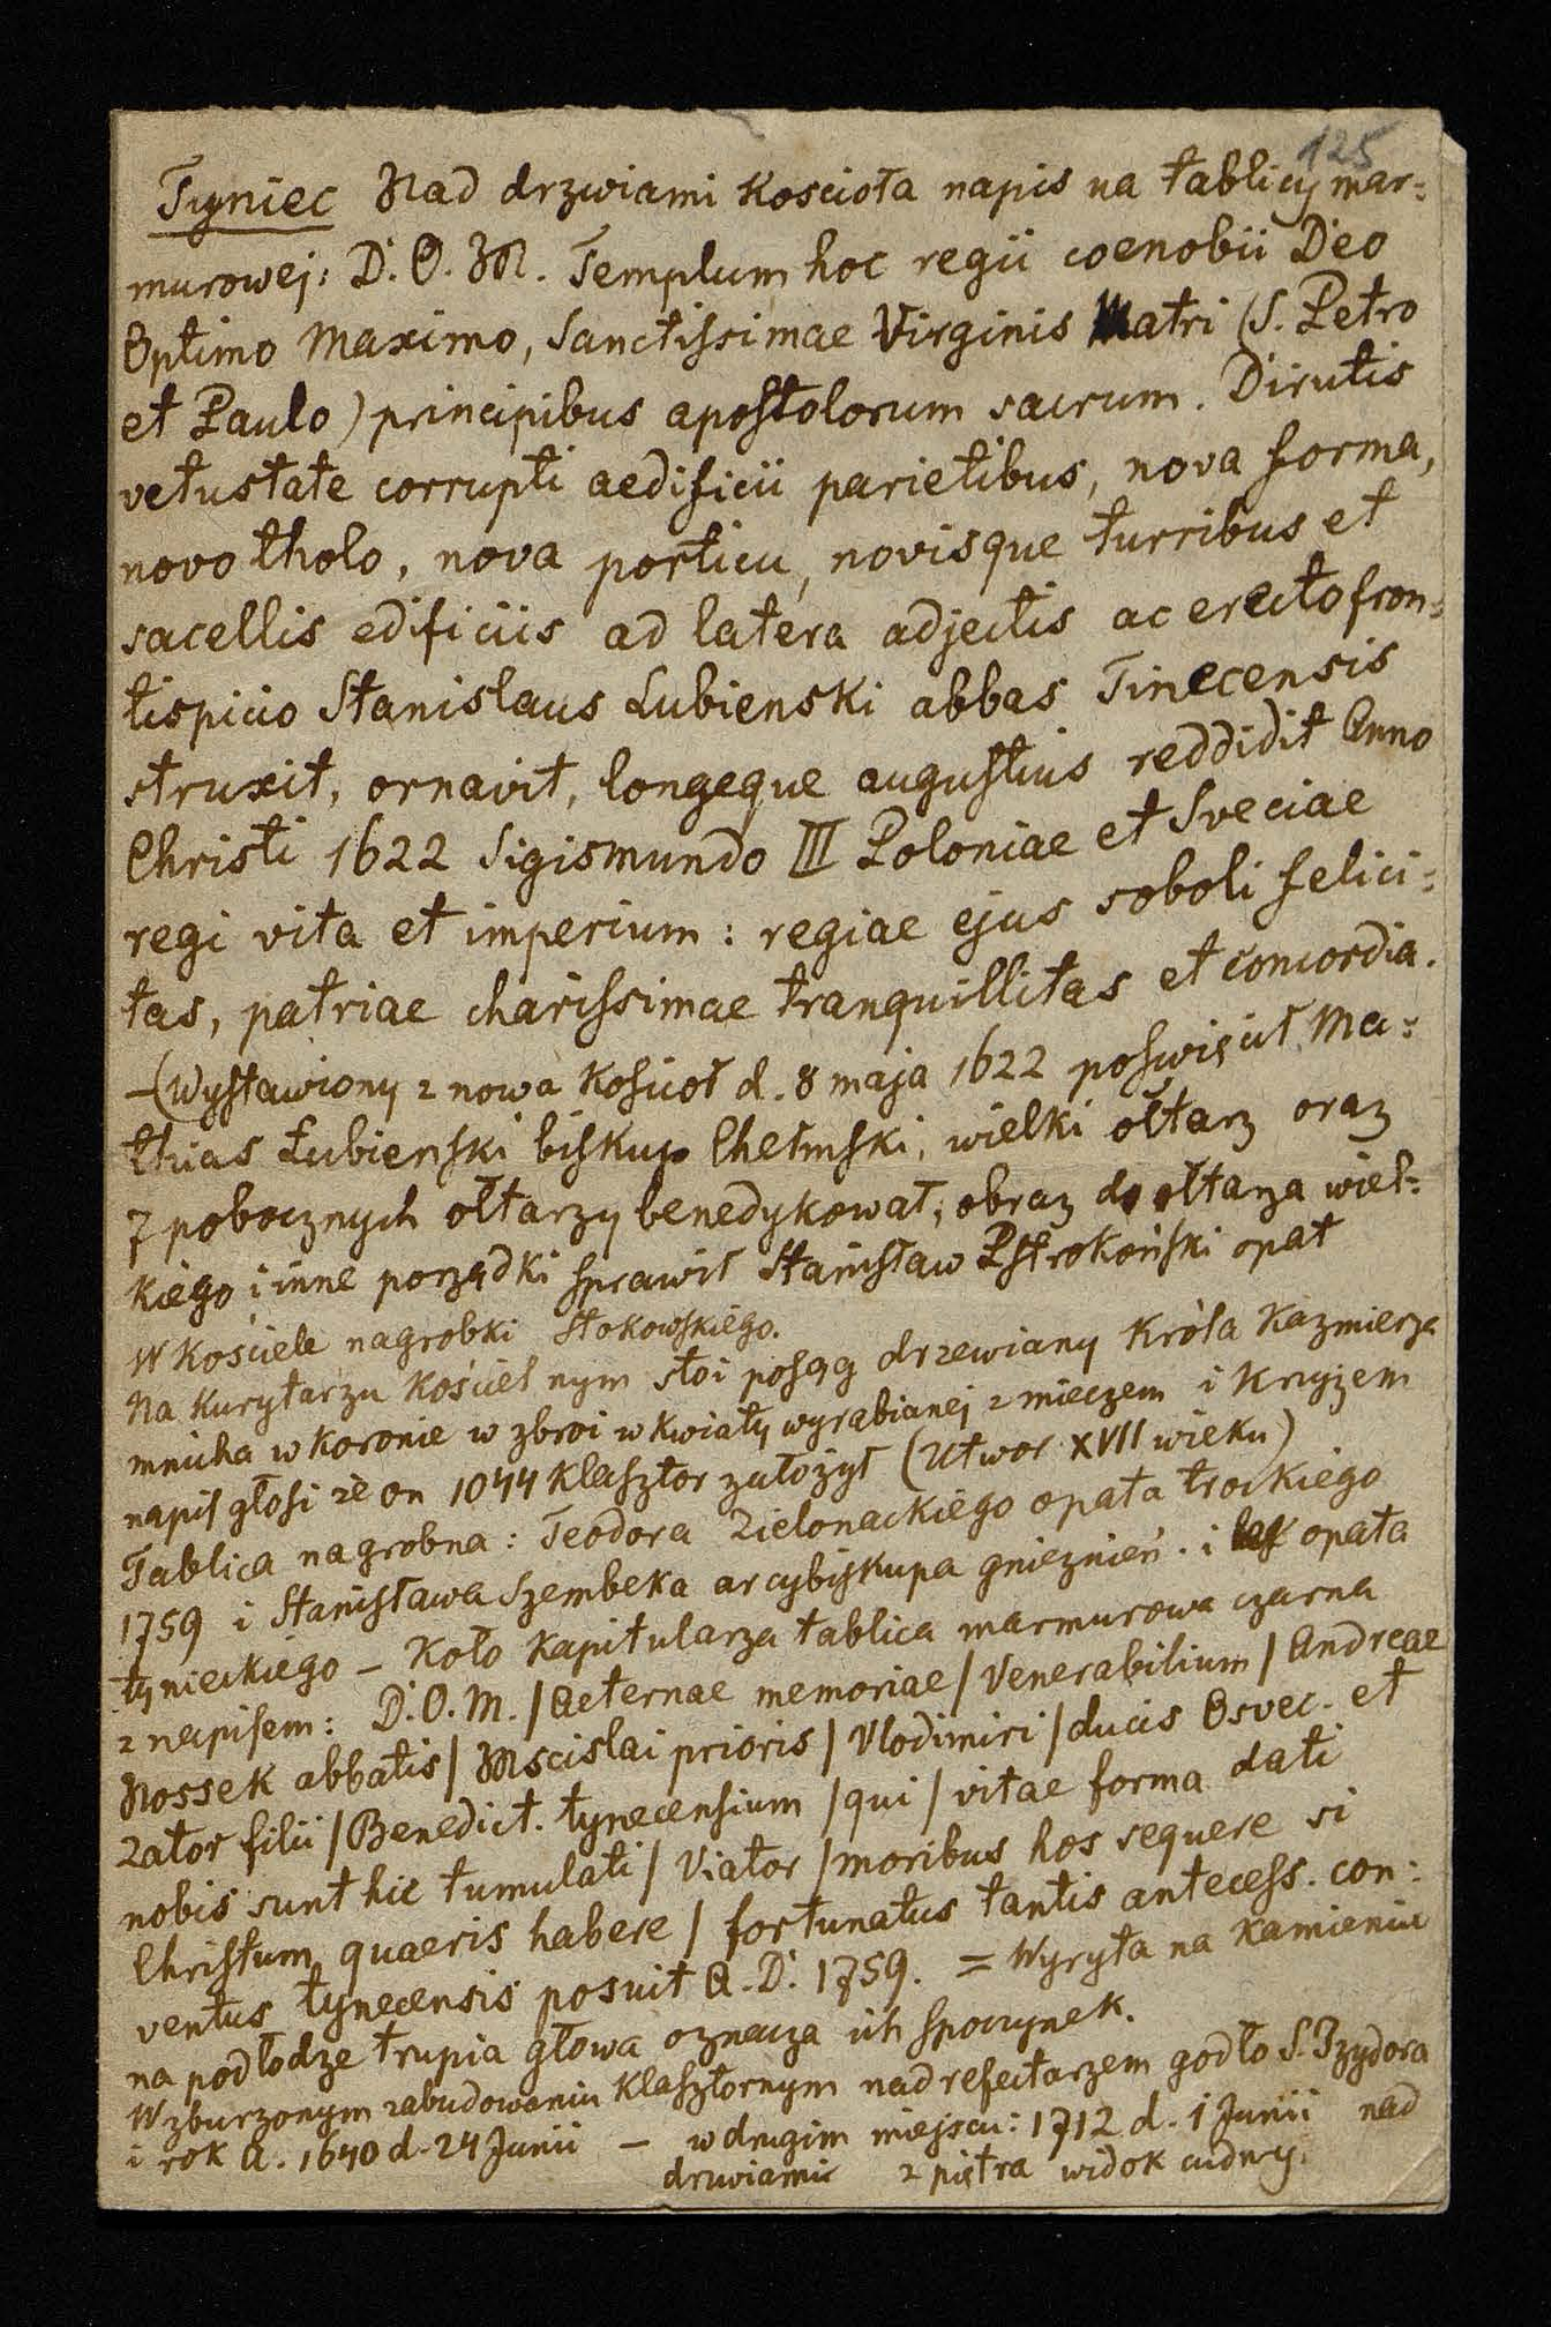 125
Tyniec Nad drzwiami Kosciola napis na tablicy mar=
murowej: D. O. M. Templum hoc regii coenobii Deo
Optimo Maximo, Sanctissimae Virginis Matri (S. Petro
et Paulo) principibus apostolorum sacrum. Dirutis
vetustate corrupti aedificii parietibus, nova forma,
novo tholo, nova porticu, novisque turribus et
sacellis edificiis ad latera adjectis ac erecto fron=
tispicio Stanislaus Lubienski abbas Tinecensis
struxit, ornavit, longeque augustius reddidit Anno
Christi 1622 Sigismundo III Poloniae et Sveciae
regi vita et imperium: regiae ejus soboli felici=
tas, patriae charissimae tranquillitas et concordia.
–(Wystawiony z nowa Kosciół d. 8 maja 1622 poswięcił Ma=
thias Łubienski biskup Chełmski, wielki ołtarz oraz
7 pobocznych ołtarzy benedykował; obraz do ołtarza wiel=
kiego i inne porządki sprawił Stanisław Pstrokoński opat
W Kościele nagrobki Stokowskiego.
Na Kurytarzu Kościelnym stoi posąg drzewiany Króla Kazmierza
mnicha w Koronie w zbroi w Kwiaty wyrabianej z mieczem i Krzyżem
napis głosi że on 1044 Klasztor założył (Utwor XVII wieku)
Tablica nagrobna: Teodora Zielonackiego opata trockiego
1759 i Stanisława Szembeka arcybiskupa gnieznień. i opata
tynieckiego – Koło Kapitularza tablica marmurowa czarna
z napisem: D.O.M. / Aeternae memoriae / Venerabilium / Andreae
Nossek abbatis / Mscislai prioris / Vlodimiri / ducis Osvec. et
Zator filii / Benedict. tynecensium / qui / vitae forma dati
nobis sunt hic tumulati / Viator / moribus hos sequere si
Christum quaeris habere / fortunatus tantis antecess. con=
ventus tynecensis posuit A. D. 1759. = Wyryta na Kamieniu
na podłodze trupia głowa oznacza ich spoczynek.
W zburzonym zabudowaniu Klasztornym nad refectarzem godło S. Izydora
i rok A. 1640 d. 24 Junii – w drugim miejscu: 1712 d. 1 Junii nad
drzwiami z piętra widok cudny.